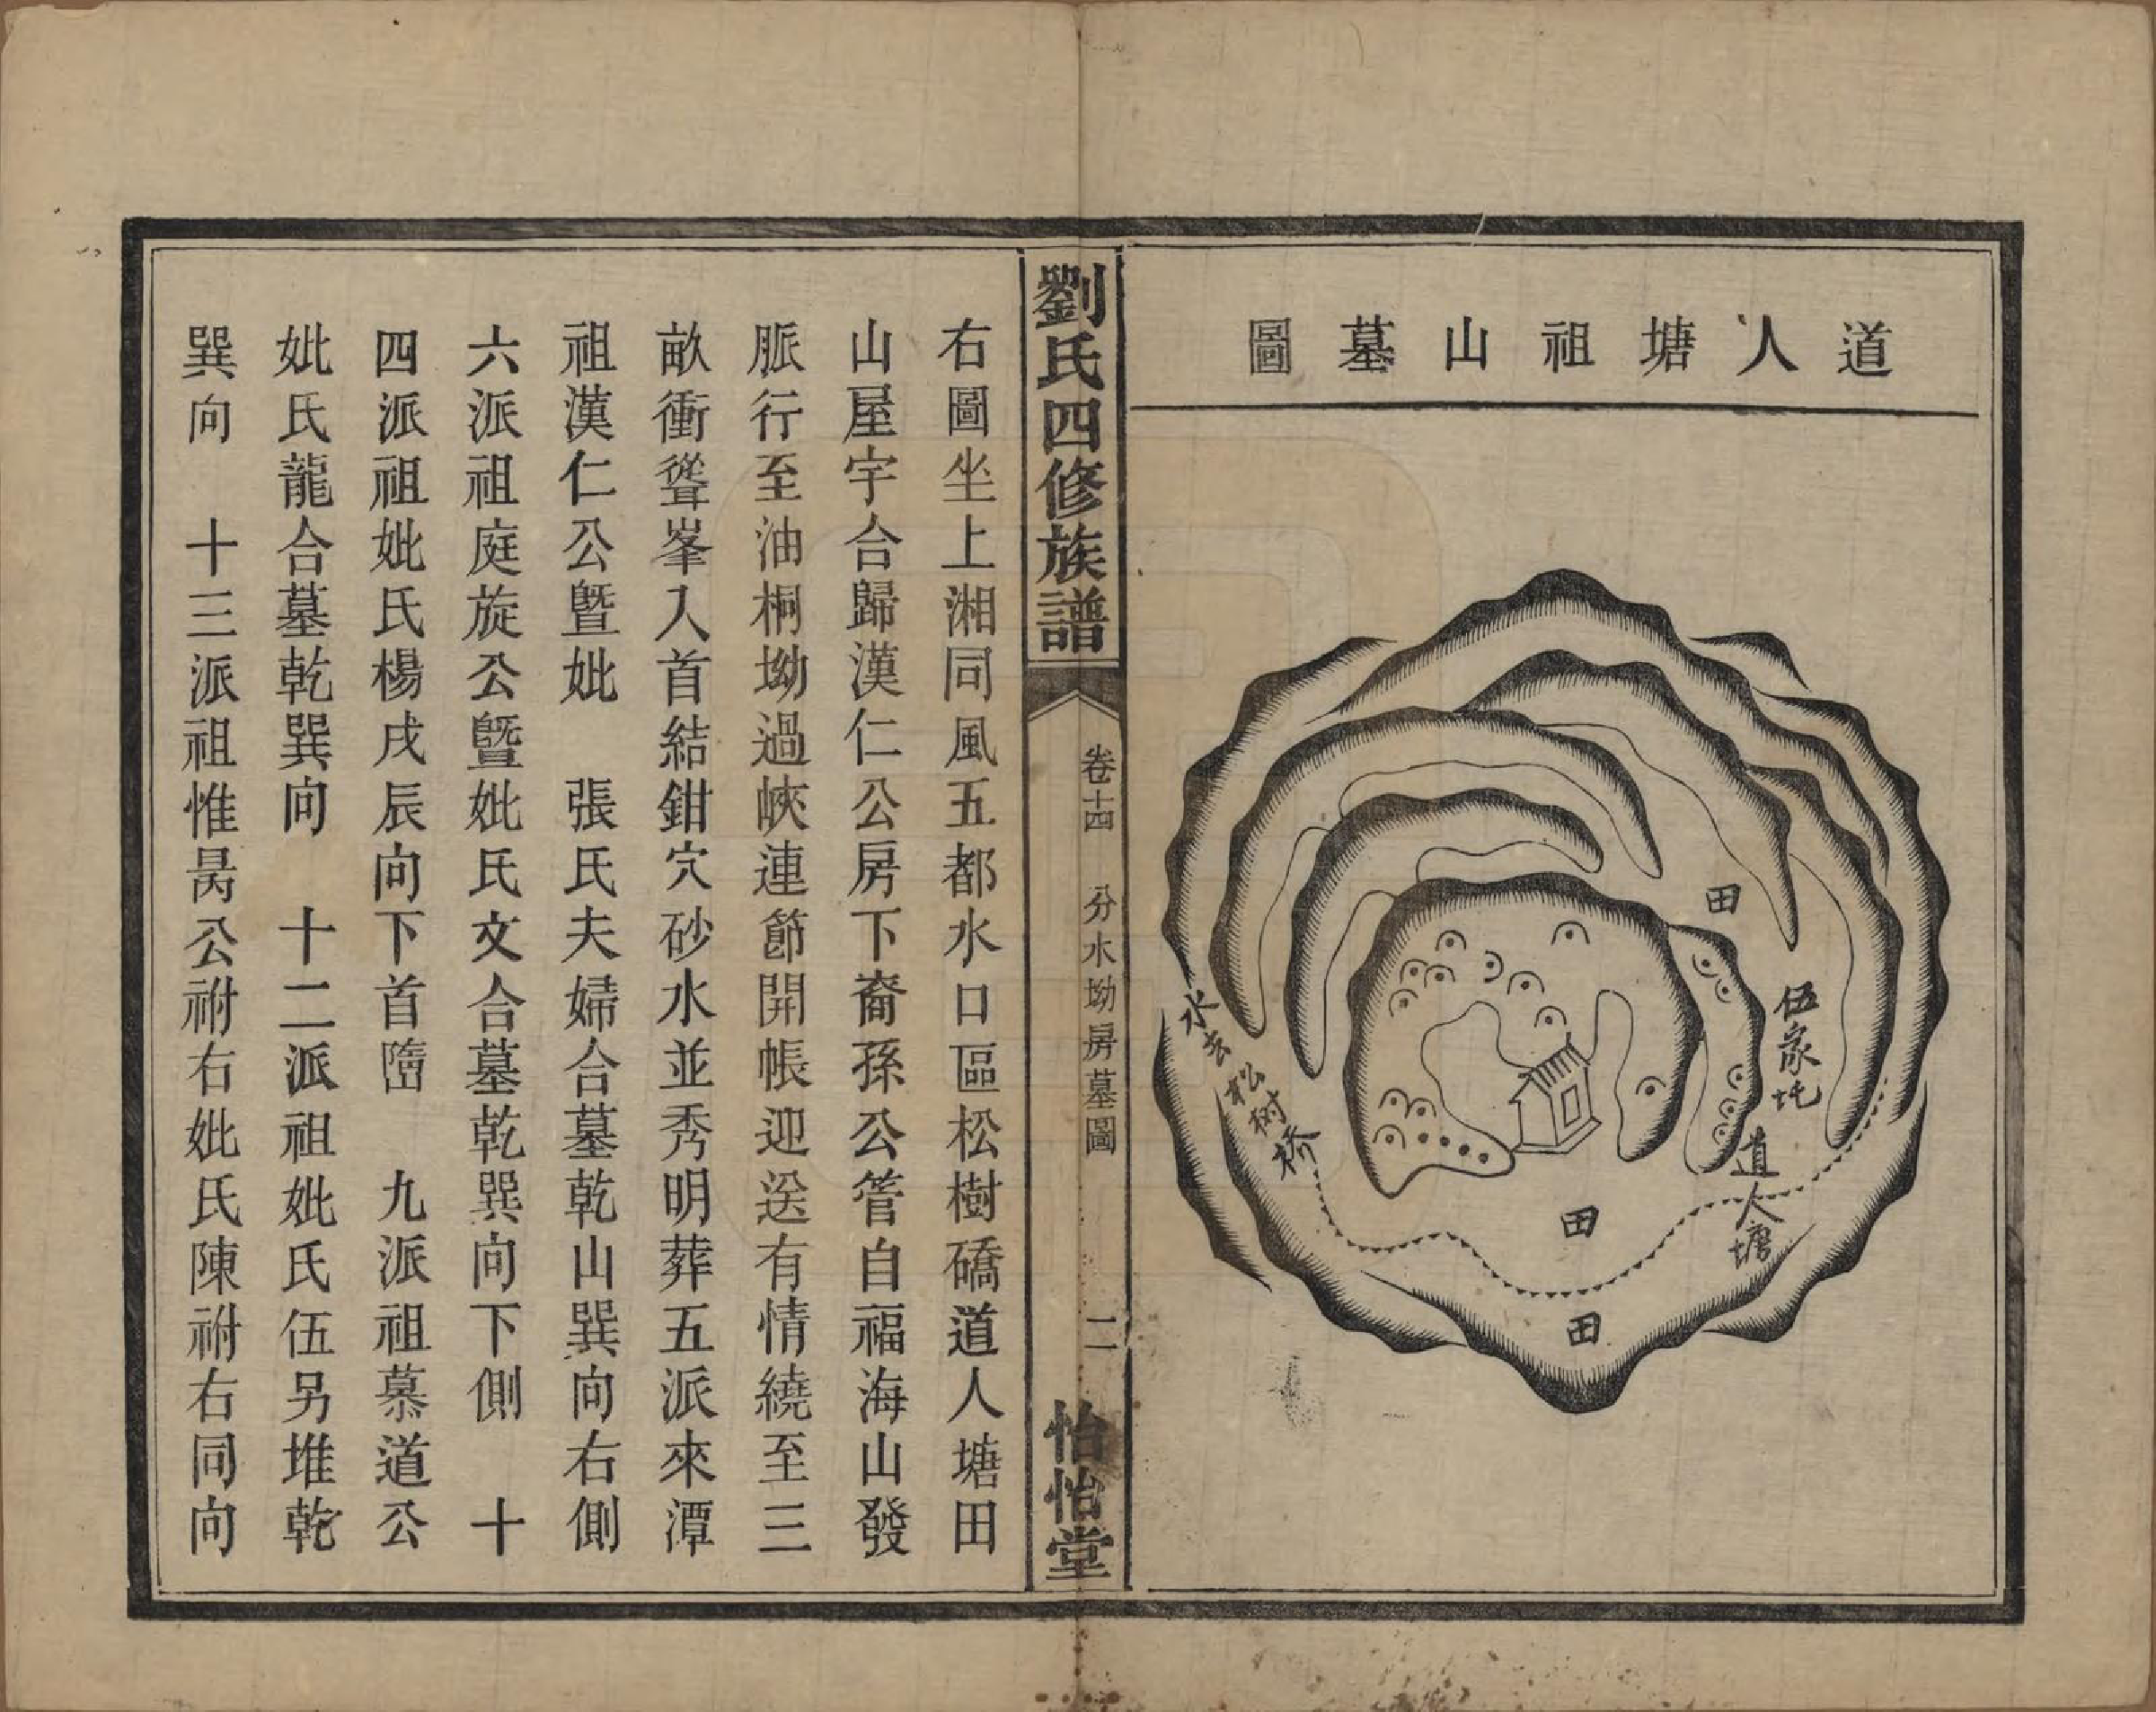 道人塘祖山墓圖
田
伍家圫
道人塘
水去松树桥
田
田
劉氏四修族譜
卷十四
分水坳房墓圖
二
怡怡堂
右圖坐上湘同風五都水口區松樹礄道人塘田
山屋宇合歸漢仁公房下裔孫公管自福海山發
脈行至油桐坳過峽連節開帳迎送有情繞至三
畝衝聳峯入首結鉗穴砂水並秀明葬五派來潭
祖漢仁公暨妣　張氏夫婦合墓乾山巽向右側
六派祖庭旋公暨妣氏文合墓乾巽向下側　十
四派祖妣氏楊戌辰向下首墮　九派祖慕道公
妣氏龍合墓乾巽向　十二派祖妣氏伍另堆乾
巽向　十三派祖惟昺公祔右妣氏陳祔右同向